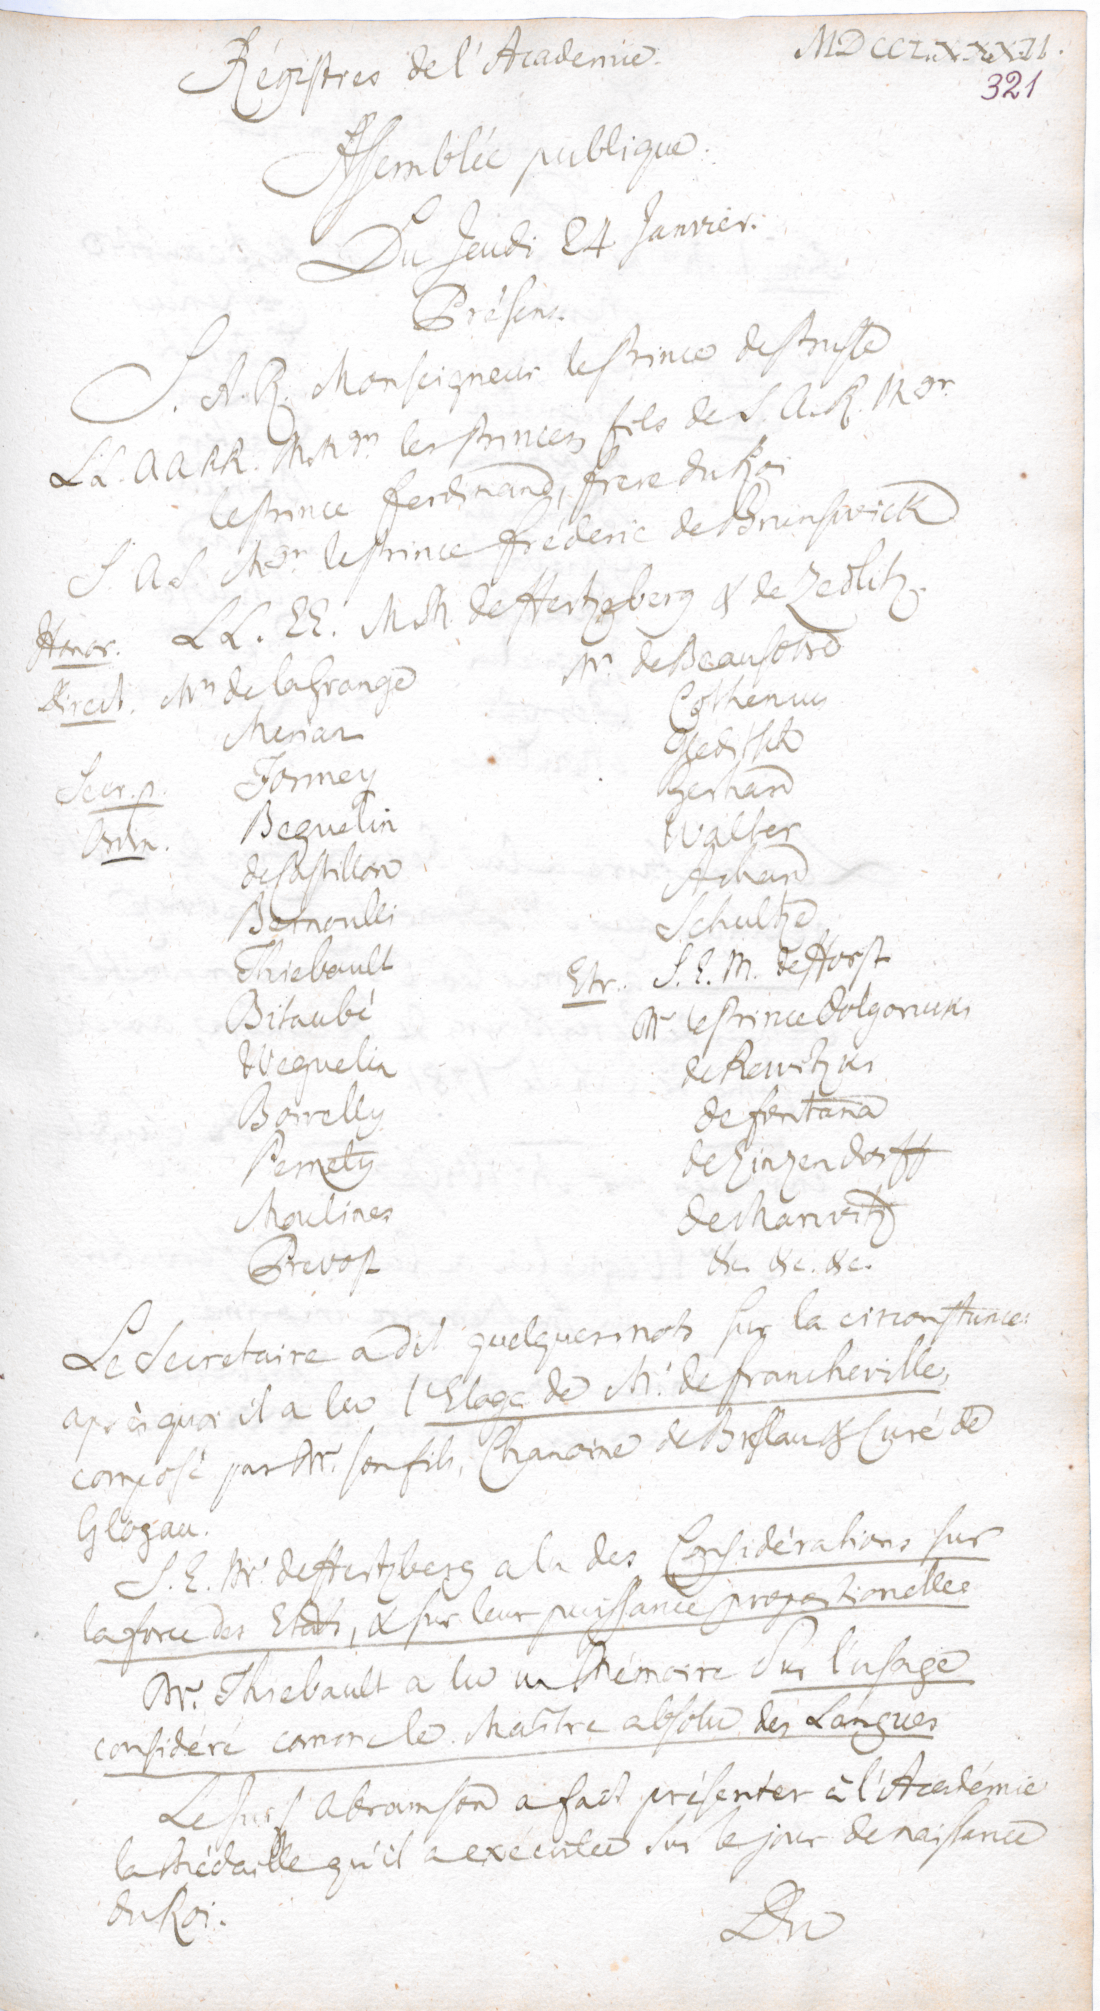 Régistres de l'Academie.
MDCCLXXXII.
321
Assemblée publique.
Du Jeudi 24 Janvier.
Présens.
S. A. R. Monseigneur le Prince de Prusse
LL. AA RR. MMgrs les Princes fils de S. A. R. Mgr.
le Prince Ferdinand, frere du Roi
S. A. S. Mgr. le Prince Fréderic de Brunswick
Honor. LL. EE. MM. de Hertzberg & de Zedlitz.
Direct. Mrs de la Grange
Merian
Secr. p. Formey
Ordin. Beguelin
de Castillon
Bernoulli
Thiebault
Bitaubé
Weguelin
Borrelly
Pernety
Moulines
Prevost
Mr. de Beausobre
Cothenius
Gleditsch
Gerhard
Walter
Achard
Schultze
Etr. S. E. M. de Horst
Mr. le Prince Dolgorucki
de Rewitzki
de Fontana
de Zinzendorff
de Marwitz
&c. &c. &c.
Le Secretaire a dit quelques mots sur la circonstance:
après quoi il a lu l'Eloge de Mr. de Francheville,
composé par Mr. son fils, Chanoine de Breslau & Curé de
Glogau.
S. E. Mr. de Hertzberg a lu des Considérations sur
la force des Etats, & sur leur puissance proportionelle
Mr. Thiebault a lu un Mémoire Sur l'usage
considéré comme le Maître absolu des Langues
Le Juif Abramson a fait présenter à l'Académie
la Médaille qu'il a exécutée sur le jour de naissance
du Roi.
Du